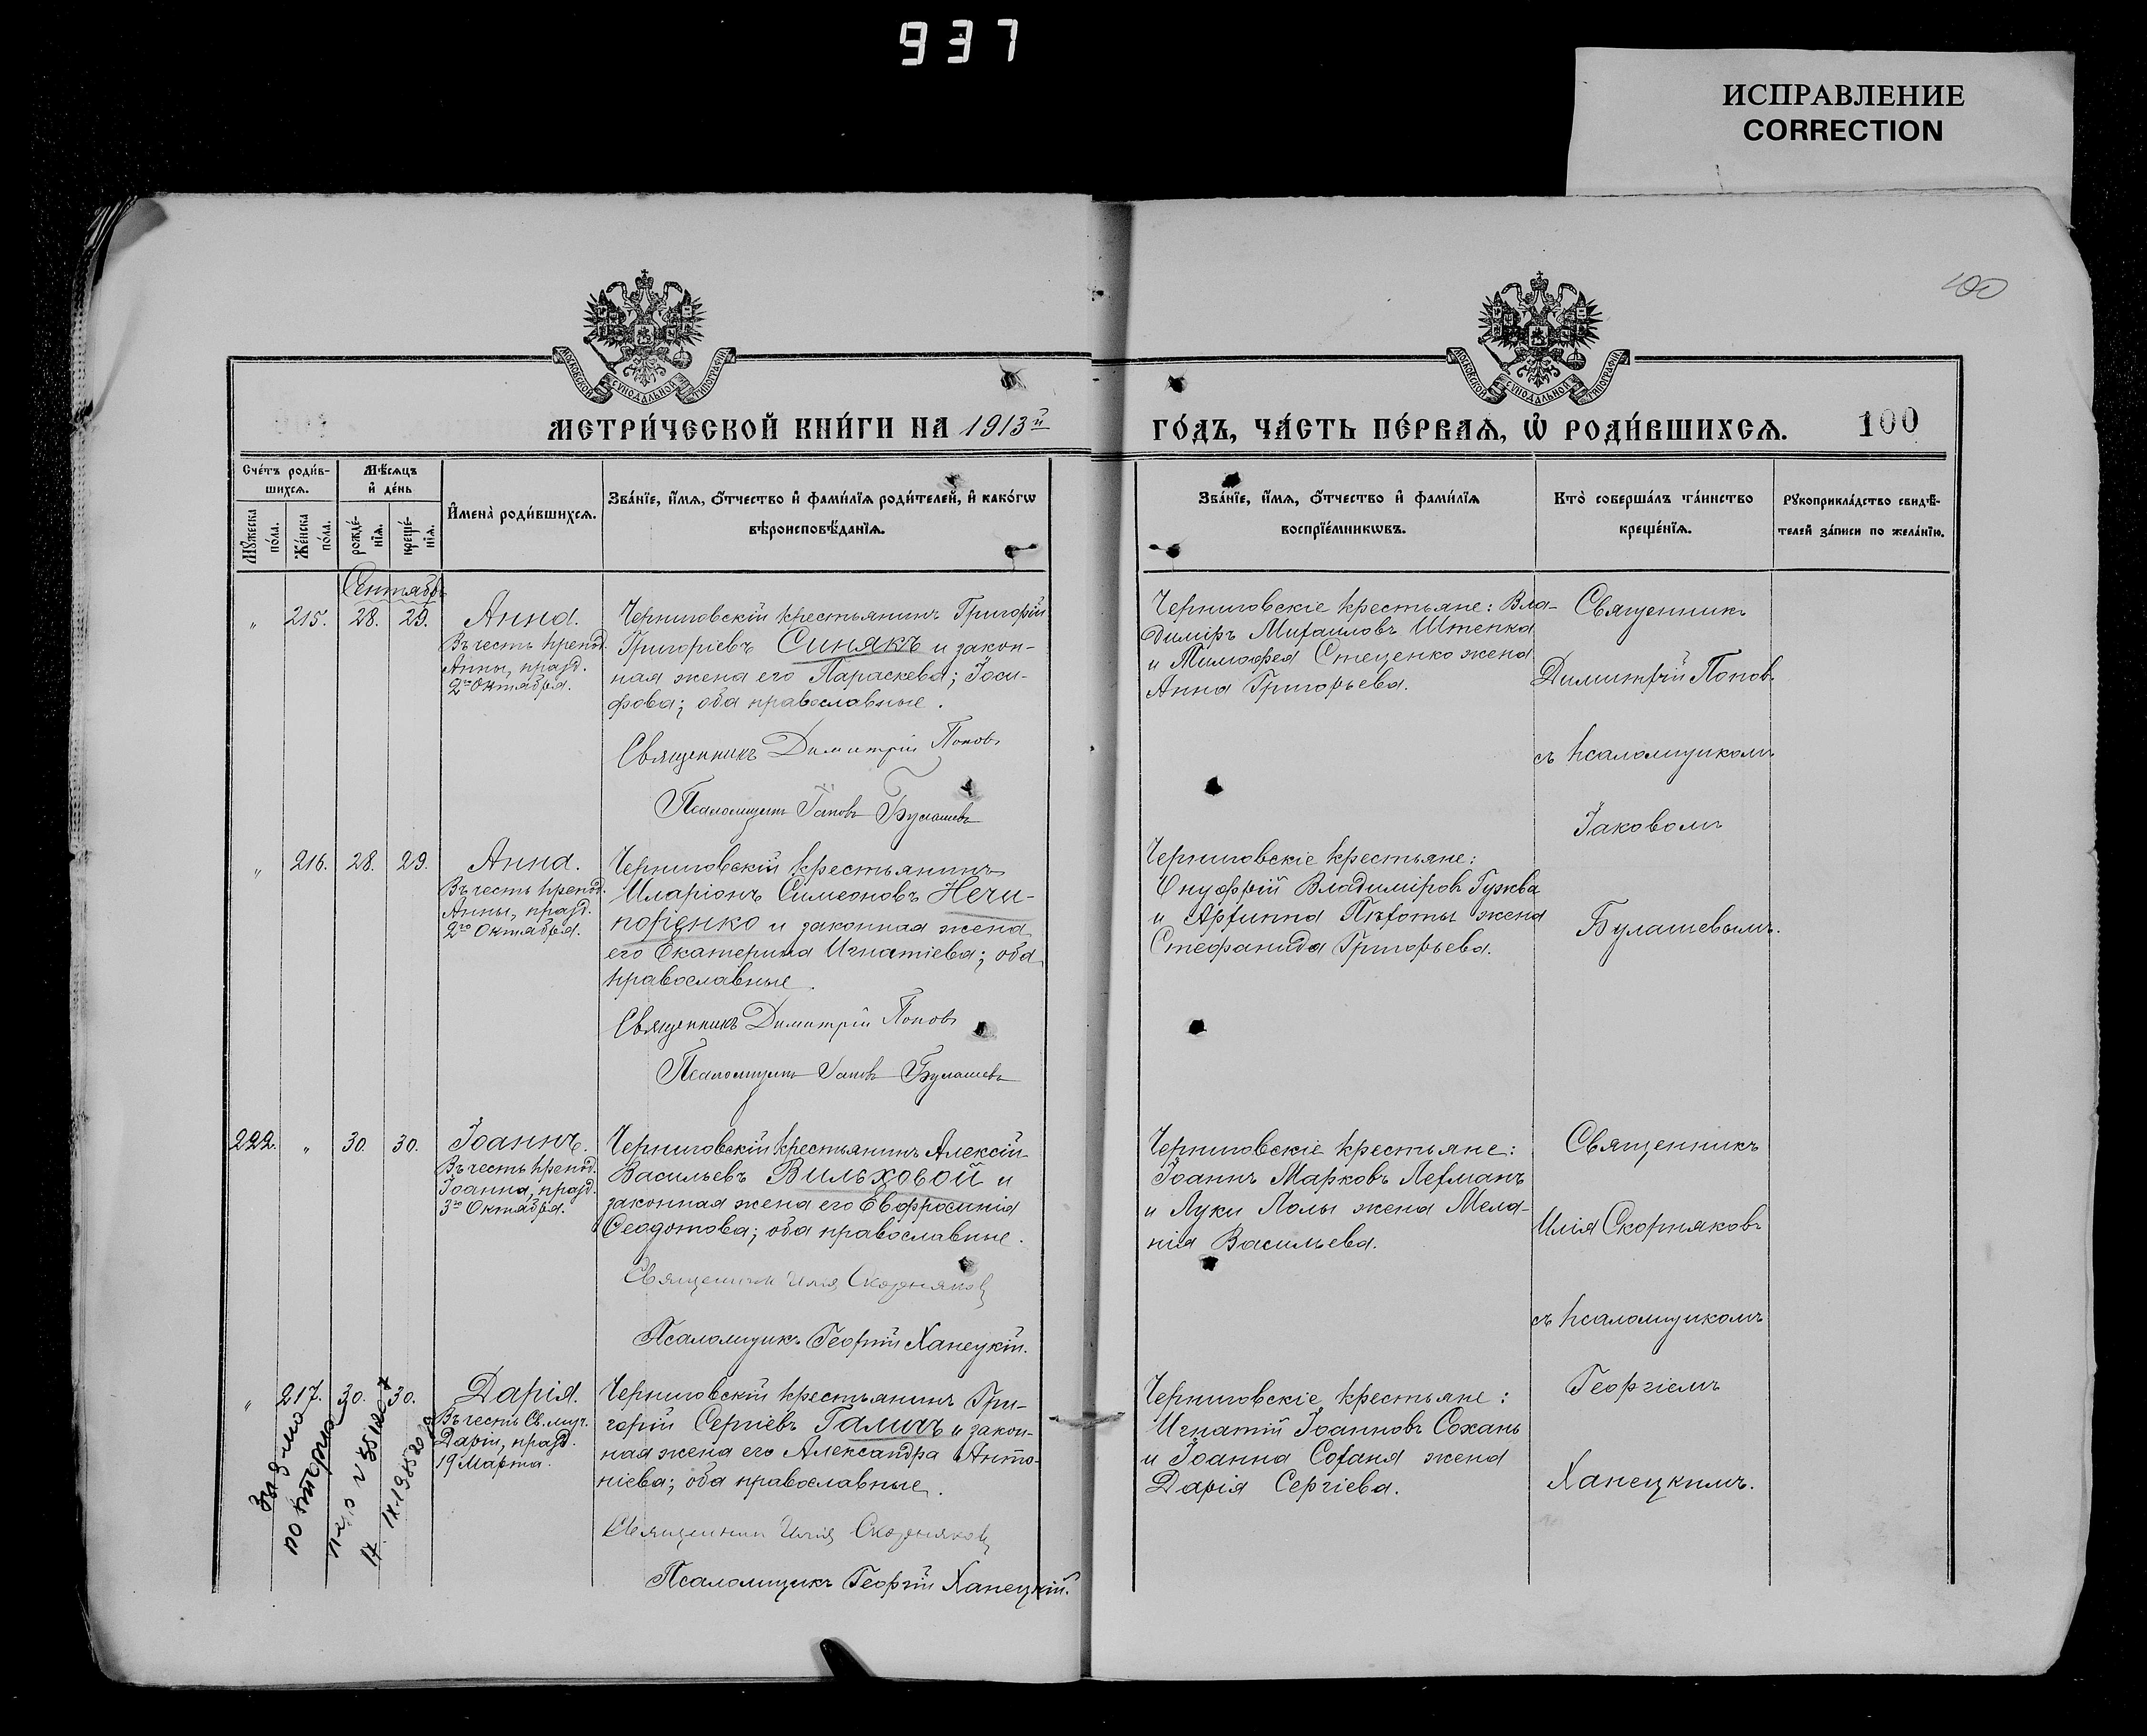 937
ИСПРАВЛЕНИЕ
CORRECTION
100
МОСКОВСКОЙ СѴНОДАЛЬНОЙ ТИПОГРАФІИ
МОСКОВСКОЙ СѴНОДАЛЬНОЙ ТИПОГРАФІИ
МЕТРИ́ЧЕСКОЙ КНИ́ГИ НА 1913й
ГО́ДЪ, ЧА́СТЬ ПЕ́РВАѦ, Ѡ РОДИ́ВШИХСѦ.
100
Сче́тъ роди́в-
шихсѧ.
Мѣ́сѧцъ
и҆ де́нь
Мꙋжеска
по́ла.
Же́нска
по́ла.
рожде́-
нїѧ.
креще́-
нїѧ.
И҆мена̀ роди́вшихсѧ.
Зва́нїе, и҆́мѧ, ѻ҆́тчество и҆ фами́лїѧ роди́телей, и҆ како́гѡ
вѣроисповѣ́данїѧ.
Зва́нїе, и҆́мѧ, ѻ҆́тчество и҆ фами́лїѧ
воспрїе́мникѡвъ.
Кто̀ соверша́лъ та́инство
креще́нїѧ.
Рꙋкоприкла́дство свидѣ́-
телей за́писи по жела́нїю.
Сентябрь
" 215. 28. 29. Анна.
Въ честь препод.
Анны, празд.
2го Октября.
Черниговскій крестьянинъ Григорій
Григоріевъ Синякъ и закон-
ная жена его Параскева; Іоси-
фова; оба православные.
Священникъ Димитрій Поповъ
Псаломщикъ Іаковъ Булашевъ
Черниговскіе крестьяне: Вла-
диміръ Михаиловъ Штепка
и Тимофея Стеценко жена
Анна Григорьева.
Священникъ
Димитрій Поповъ
съ псаломщикомъ
Іаковомъ
Булашевымъ.
" 216. 28. 29. Анна.
Въ честь препод.
Анны, празд.
2го Октября.
Черниговскій крестьянинъ
Иларіонъ Симеоновъ Нечи-
поріенко и законная жена
его Екатерина Игнатіева; оба
православные.
Священникъ Димитрій Поповъ
Псаломщикъ Іаковъ Булашевъ
Черниговскіе крестьяне:
Онуфрій Владиміровъ Гужва
и жена
Стефанида Григорьева.
222. " 30. 30. Іоаннъ.
Въ честь препод.
Іоанна, празд.
3го Октября.
Черниговскій крестьянинъ Алексій
Васильевъ Вильховой и
законная жена его Евфросинія
Ѳеодотова; оба православные.
Священникъ Илія Скорняковъ
Псаломщикъ Георгій Ханецкій.
Черниговскіе крестьяне:
Іоаннъ Марковъ Лехманъ
и Луки Лолы жена Мела-
нія Васильева.
Священникъ
Илія Скорняковъ
съ псаломщикомъ
Георгіемъ
Ханецкимъ.
" 217. 30. 30. Дарія.
Въ честь Св. муч.
Даріи, празд.
19 Марта.
Черниговскій крестьянинъ Гри-
горій Сергіевъ Галичъ и закон-
ная жена его Александра Анто-
ніева; оба православные.
Священникъ Илія Скорняковъ
Псаломщикъ Георгій Ханецкій.
Черниговскіе крестьяне:
Игнатій Іоанновъ Сохань
и Іоанна Соханя жена
Дарія Сергіева.